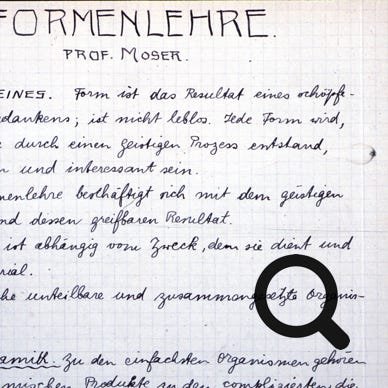 FORMENLEHRE.
PROF. MOSER.
EINES. Form ist das Resultat eines schöpfe-
dankens; ist nicht leblos. Jede Form wird,
durch einen geistigen Prozess entstand,
und interessant sein.
menlehre beschäftigt sich mit dem geistigen
nd dessen greifbaren Resultat.
ist abhängig vom Zweck, dem sie dient und
rial.
he unteilbare und zusammengesetzte Organis-
amik. Zu den einfachsten Organismen gehören
mischen Produkte zu den komplizierten die